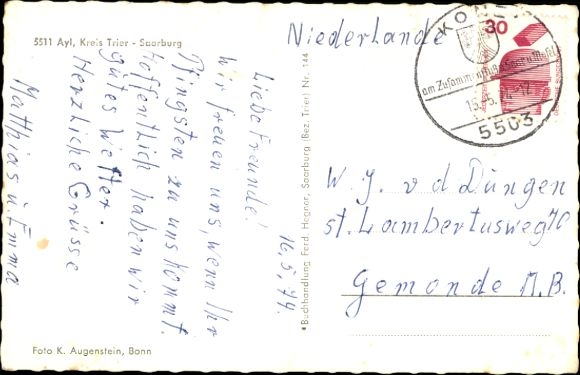 5511 Ayl, Kreis Trier - Saarburg
16.5.74.
Liebe Freunde!
Wir freuen uns, wenn Ihr
Pfingsten zu uns kommt.
hoffentlich haben wir
gutes Wetter.
Herzliche Grüsse
Matthias u. Emma
Foto K. Augenstein, Bonn
Buchhandlung Ferd. Hegner, Saarburg (Bez. Trier) Nr. 144
Niederlande
KONZ
am Zusammenfluß von Saar u. Mosel
5503
30
W. J. v d Düngen
st. Lambertusweg 70
Gemonde N.B.